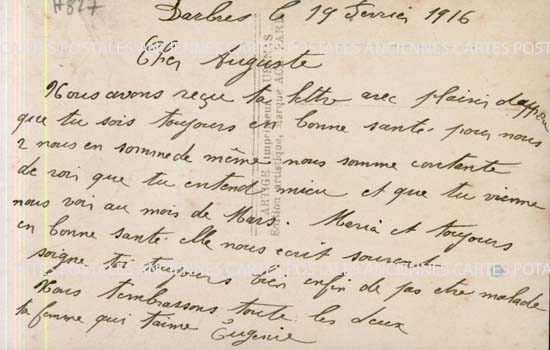 H827
Darbres le 19 Fevrier 1916
Cher Auguste
Nous avons reçu ta lettre avec plaisir
que tu sois toujours en bonne santé. pour nous
2 nous en somme de même nous somme contente
de voir que tu entend mieu et que tu vienne
nous voir au mois de Mars. Maria et toujours
en bonne santé. elle nous ecrit souvent.
soigne toi toujours bien enfin de pas etre malade
Nous t'embrassons toute les deux
ta femme qui t'aime Eugenie
CARTES POSTALES ANCIENNES CARTES POSTALES ANCIENNES